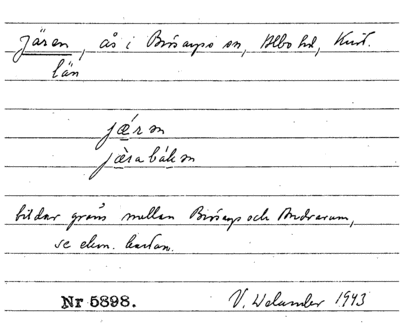 Jären, å i Brösarps sn, Albo hd, Krist.
län
jæ̀rən
jæ̀rabák ən
bildar gräns mellan Brösarp och Andrarum,
se ekon. kartan.
Nr 5898. V. Welander 1943